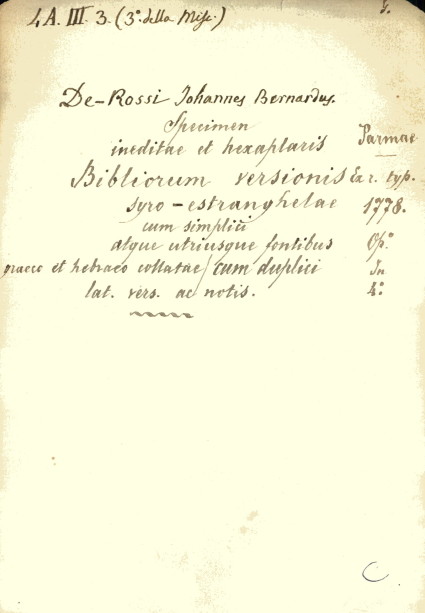 4 A. III. 3. (3º. della Misc.)
De-Rossi Johannes Bernardus.
Specimen
ineditae et hexaplaris Parmae
Bibliorum versionis Ex r. typ.
syro-estranghelae 1778.
cum simplici
atque utriusque fontibus Op.º
graeco et hebraeo collatae cum duplici In
lat. vers. ac notis. 4º.